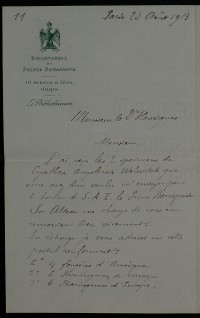 11
Paris 23 Août 1913
BIBLIOTHÈQUE
DU
PRINCE BONAPARTE
10 AVENUE D'IÉNA
PARIS
Le Bibliothécaire
Monsieur le Dr
Monsieur,
J'ai reçu les 2 spécimens de
Cyathea que
vous avez bien voulu m'envoyer pour
l'herbier de S. A. I. le Prince Bonaparte.
Son Altesse me charge de vous en
remercier bien vivement.
En échange je vous adresse un colis
postal renfermant :
1° 4 fougères d'Amérique
2° 2
3° 6 d'Europe.